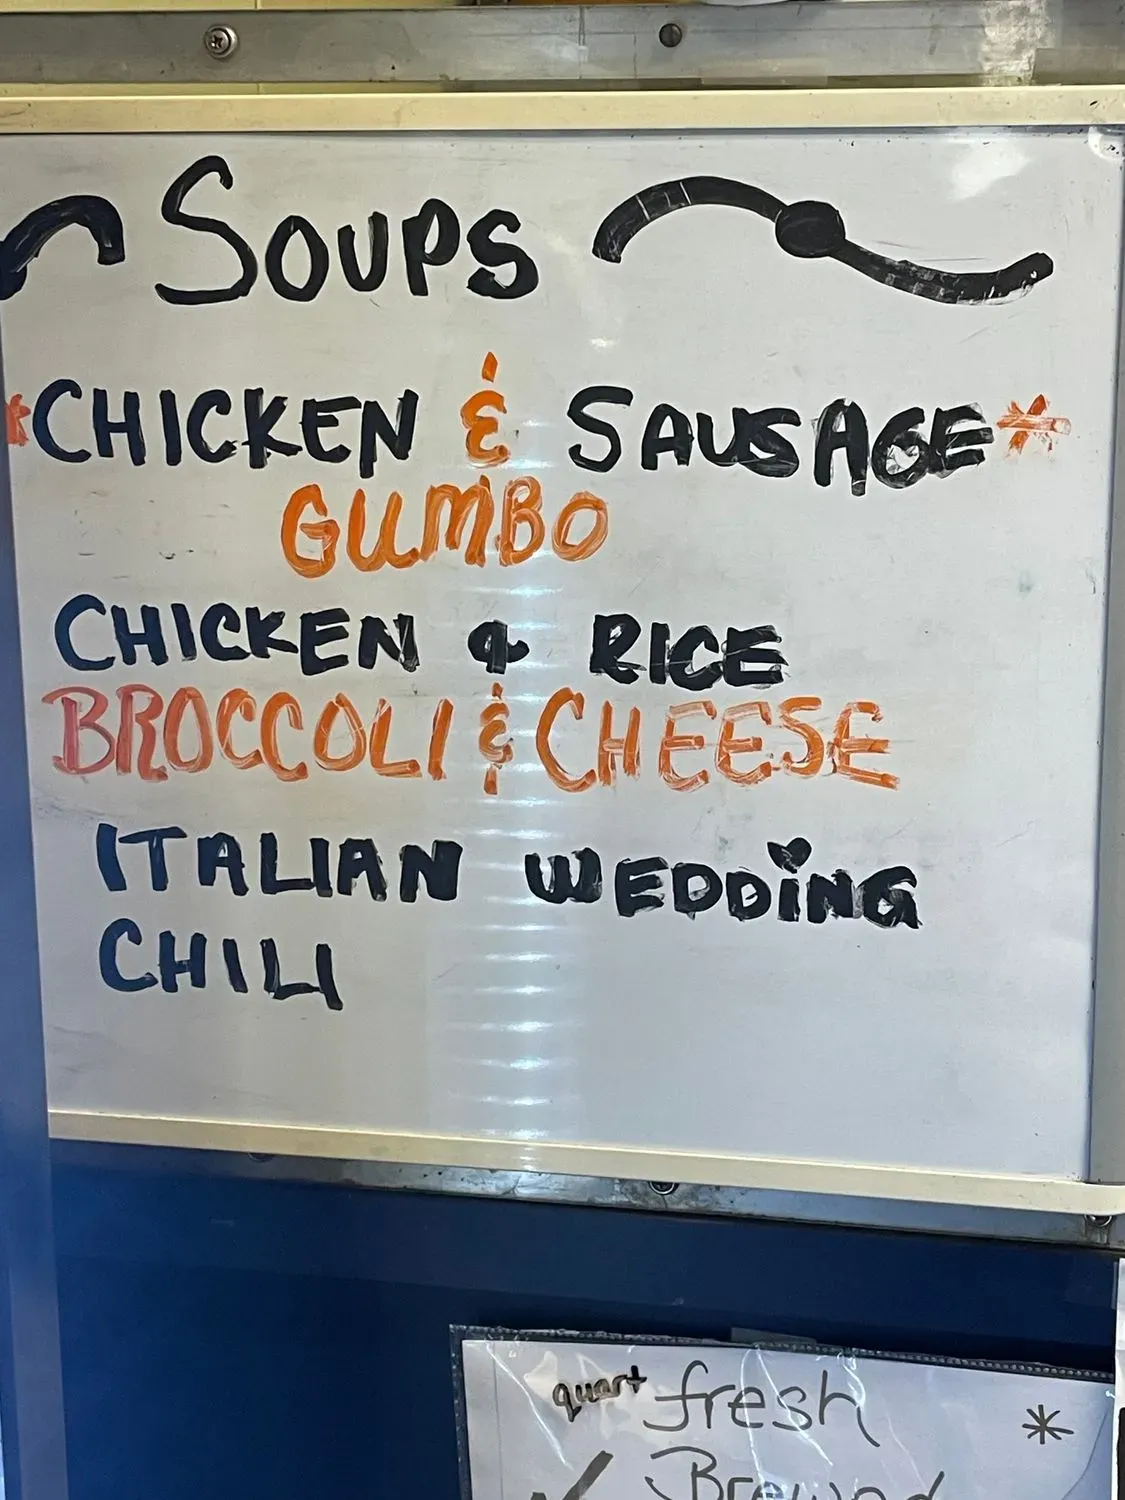 SOUPS
*CHICKEN & SAUSAGE*
GUMBO
CHICKEN & RICE
BROCCOLI & CHEESE
ITALIAN WEDDING
CHILI
quart fresh *
Brewed